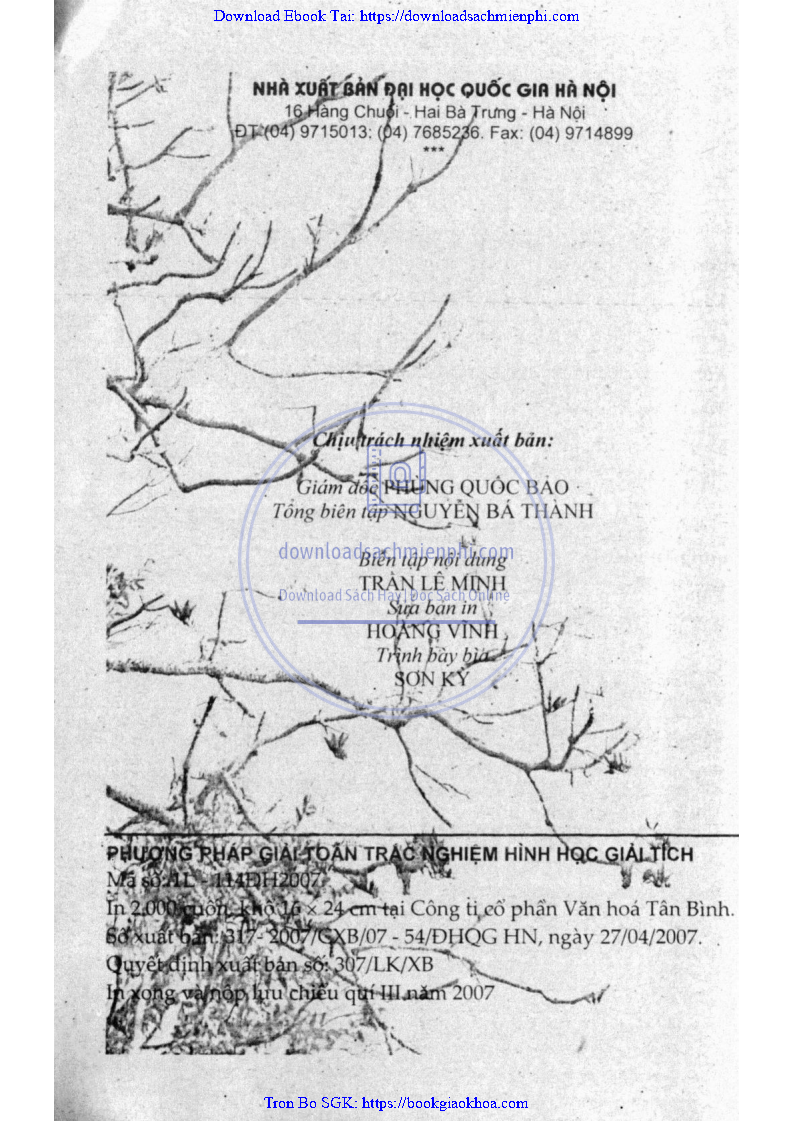 Download Ebook Tai: https://downloadsachmienphi.com
NHÀ XUẤT BẢN ĐẠI HỌC QUỐC GIA HÀ NỘI
16 Hàng Chuối - Hai Bà Trưng - Hà Nội
ĐT (04) 9715013: (04) 7685236. Fax: (04) 9714899
***
Chịu trách nhiệm xuất bản:
Giám đốc PHÙNG QUỐC BẢO
Tổng biên tập NGUYỄN BÁ THÀNH
downloadsachmienphi.com
Biên tập nội dung
TRẦN LÊ MINH
Download Sách Hay | Đọc Sách Online
Sửa bản in
HOÀNG VĨNH
Trình bày bìa
SƠN KỲ
PHƯƠNG PHÁP GIẢI TOÁN TRẮC NGHIỆM HÌNH HỌC GIẢI TÍCH
Mã số: 1L - 114ĐH2007
In 2.000 cuốn, khổ 16 × 24 cm tại Công ti cổ phần Văn hoá Tân Bình.
Số xuất bản: 317- 2007/CXB/07 - 54/ĐHQG HN, ngày 27/04/2007.
Quyết định xuất bản số: 307/LK/XB
In xong và nộp lưu chiểu quí III năm 2007
Tron Bo SGK: https://bookgiaokhoa.com